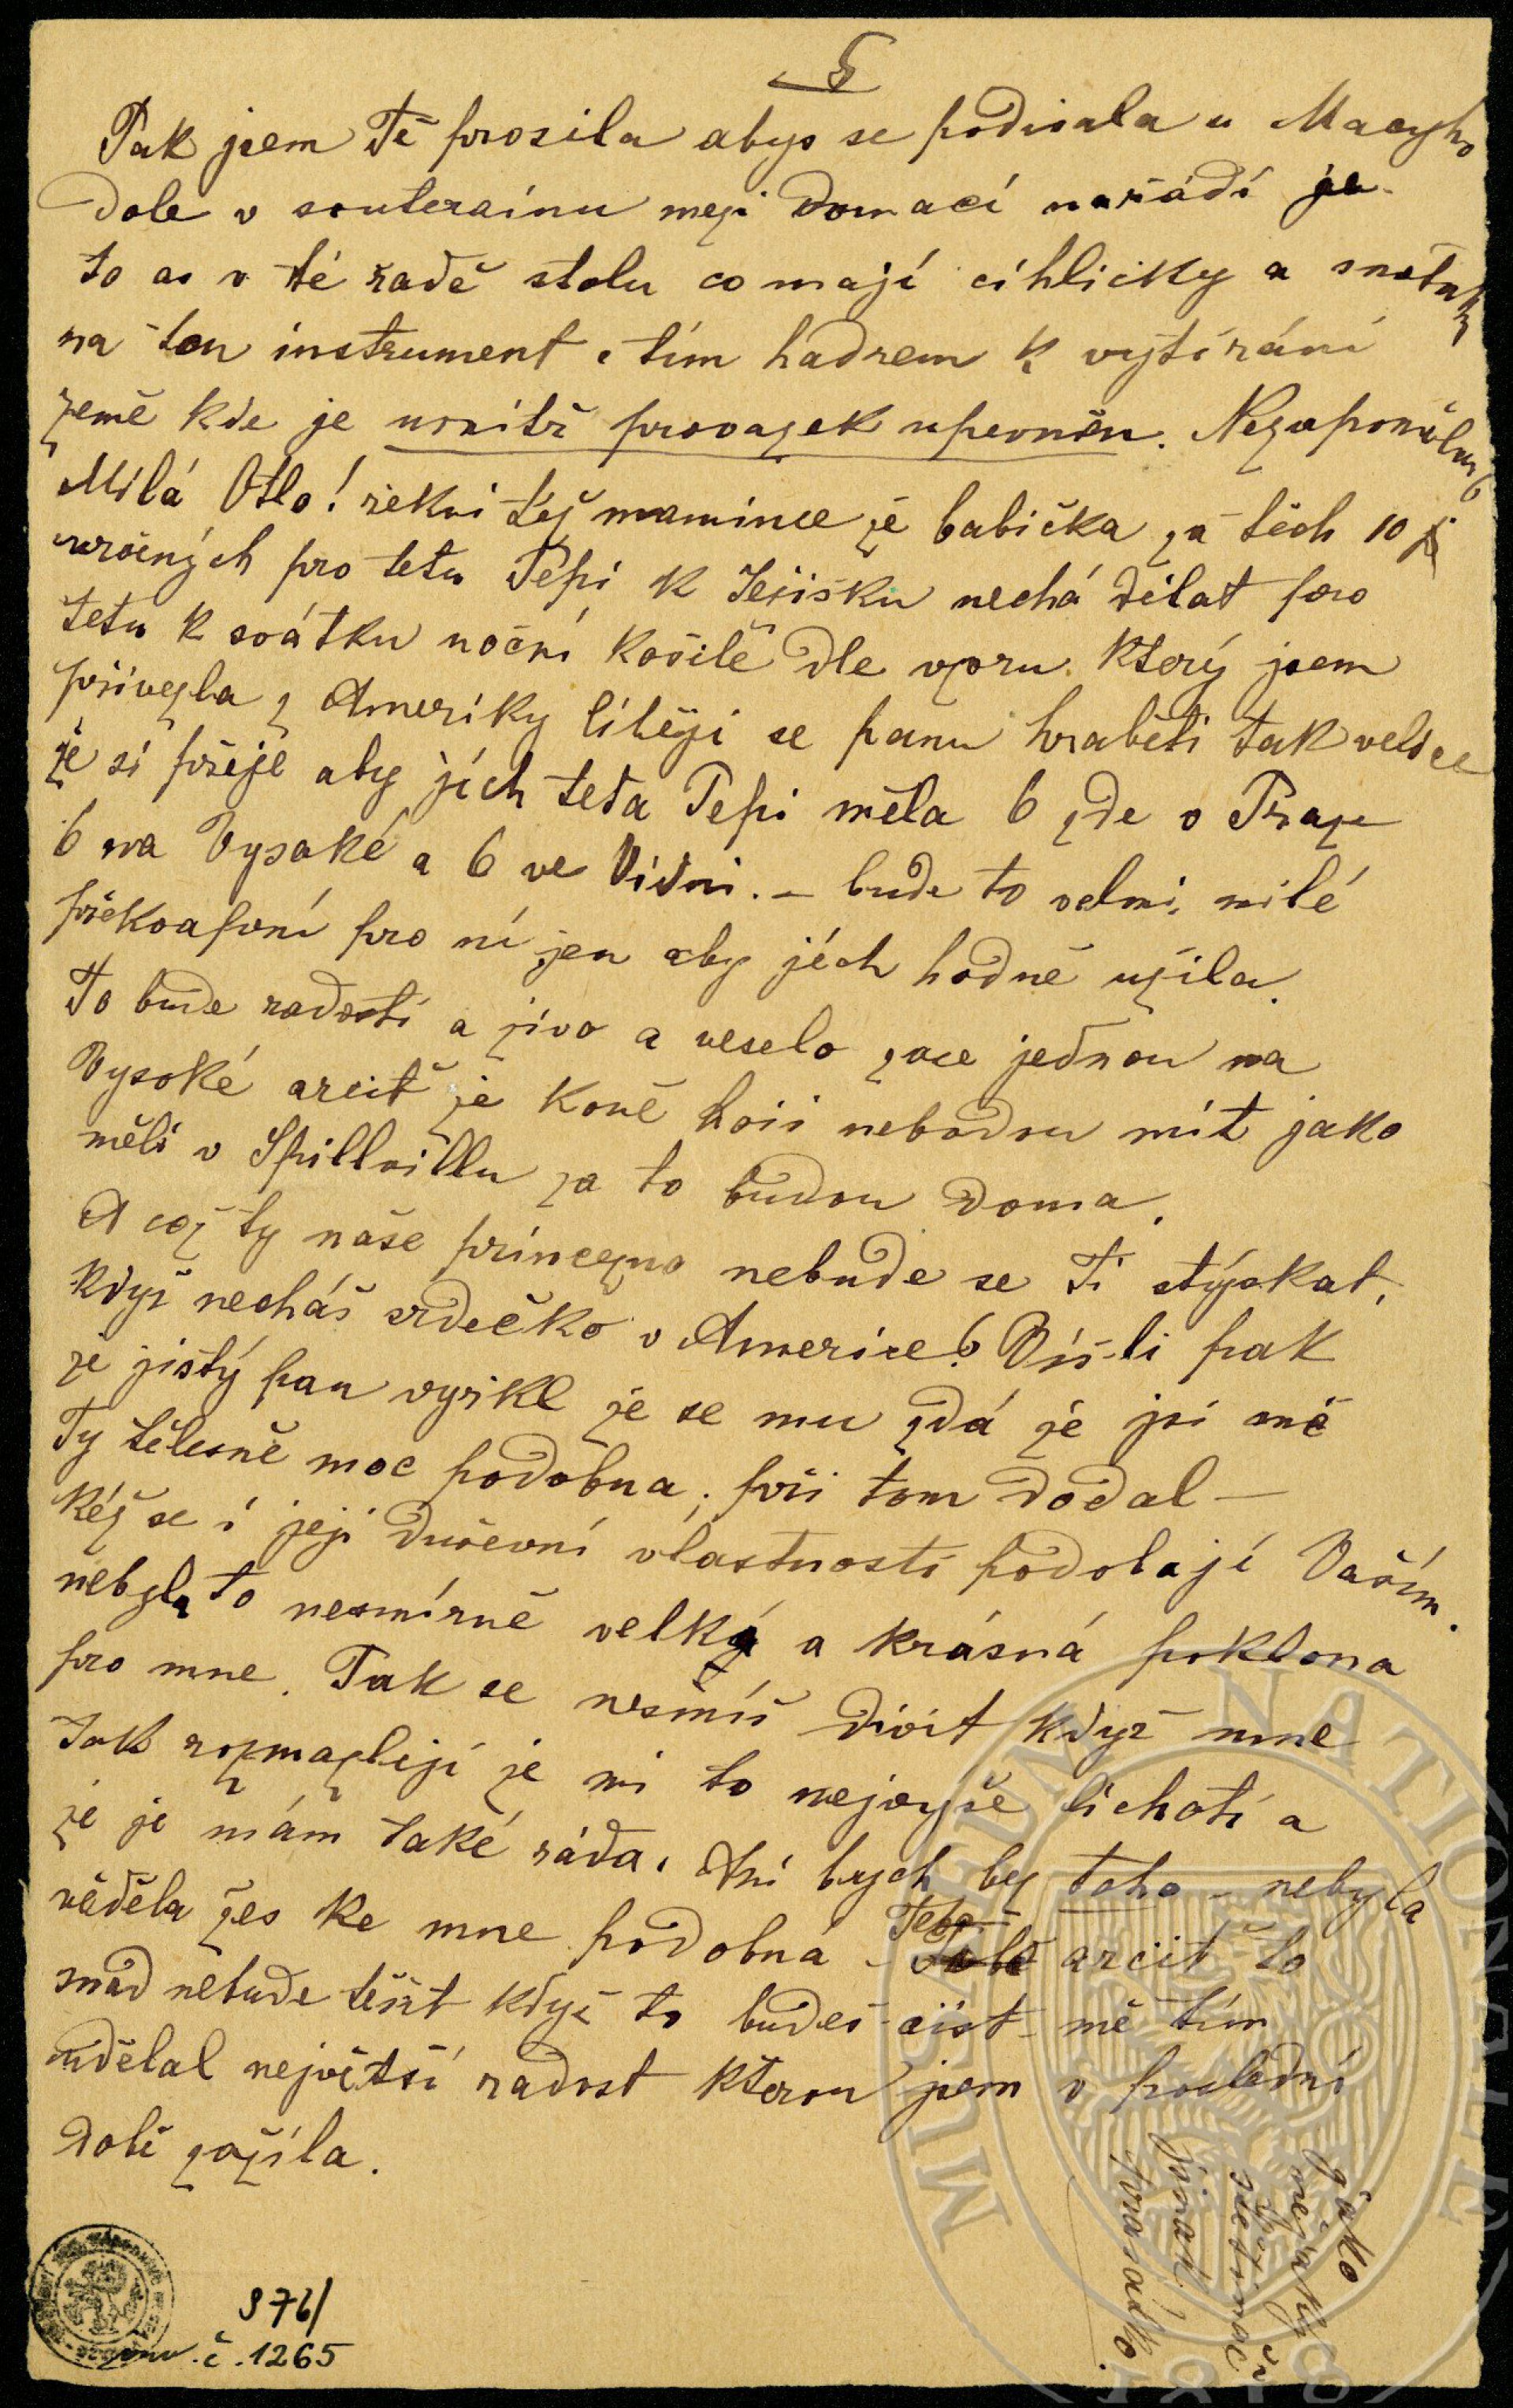 5
Pak jsem Tě prosila abys se podivala u Macyho
dole v souterainu mezi domací nařádí je
to as v té radě stolu co mají cihlicky a smetaky
na ten instrument s tím hadrem k vytírání
země kde je uvnitř provazek upevněn. Nezapomělas6
Milá Otlo! řekni též mamince že babička za těch 10 zl
určených pro tetu Pepi k Ježisku nechá dělat pro
tetu k svátku noční košilě dle vzoru který jsem
přivezla z Ameriky liběji se panu hraběti tak velice
že si přeje aby jich teta Pepi měla 6 zde v Praze
6 na Vysoké a 6 ve Vídni. – bude to velmi milé
překvapení pro ní jen aby jéch hodně užila.
To bude radosti a živo a veselo zase jednou na
Vysoké arciť že koně hoši nebodou mít jako
měli v Spillvillu za to budou doma.
A což ty naše princezno nebude se Ti stýskat,
když necháš srdečko v Americe? Víš-li pak
že jistý pan vyřikl že se mu zdá že jsi mě
Ty tělesně moc podobna, při tom dodal –
Kéž se i jeji duševní vlastnosti podobají Vaším.
nebyla to nesmírně velká a krásná poklona
pro mne. Tak se nesmíš divit když mne
tak rozmazlejí že mi to nejvyše lichotí a
že je mám také ráda. Ani bych by toho – nebyla
věděla žes ke mne podobná – Tebe arciť to
snad nebude těšit když to budeš čist – mě tím
udělal největší radost kterou jsem v poslední
době zažila.
jako
mezaky či
sletinoc
jinak
prasátko.
S 76/
inv. č. 1265
MUSEUM NATIONALE
1818